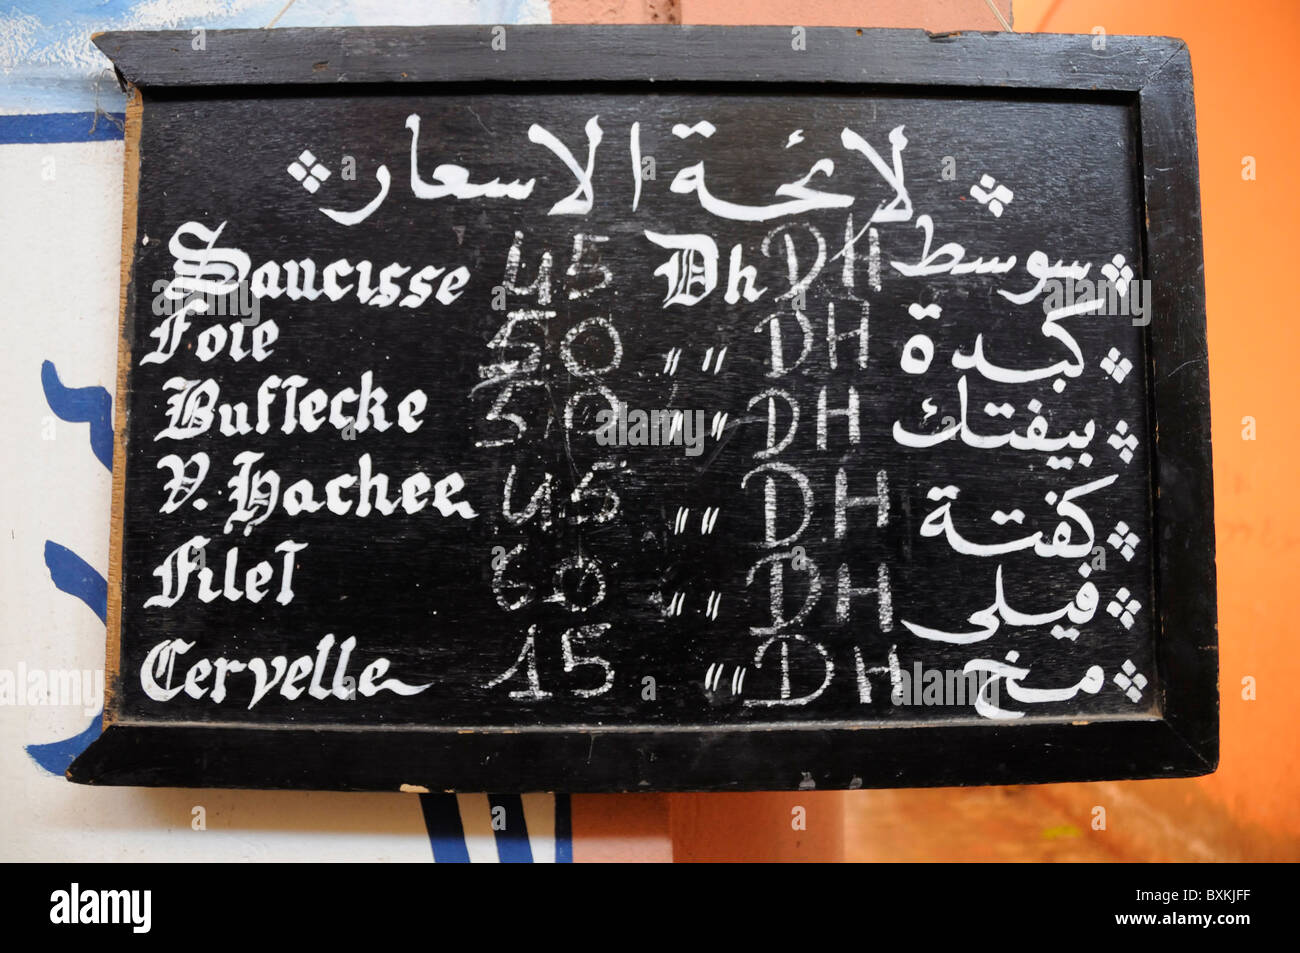 لائحة الاسعار
Saucisse 45 Dh DH سوسط
Foie 50 " " DH كبدة
Bufтecke 50 " " DH بيفتك
V. Hachee 45 " " DH كفتة
Filet 60 " " DH فيلى
Cervelle 15 " " DH مخ
alamy
Image ID: BXKJFF
www.alamy.com